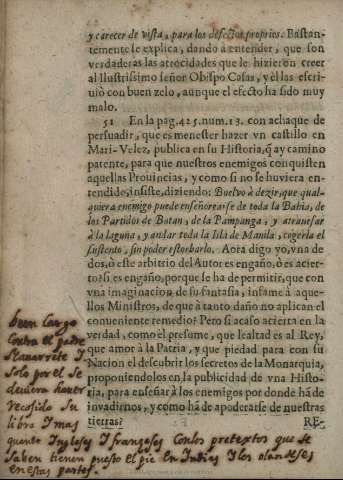 y carecer de vista, para los defectos proprios. Bastan-
temente le explica, dando à entender, que son
verdaderas las atrocidades que le hizieron creer
al Ilustrissimo señor Obispo Casas, y èl las escri-
uiò con buen zelo, aunque el efecto ha sido muy
malo.
51 En la pag. 425. num. 13. con achaque de
persuadir, que es menester hazer vn castillo en
Mari-Velez, publica en su Historia, q̃ ay camino
patente, para que nuestros enemigos conquisten
aquellas Prouincias, y como si no se huviera en-
tendido, insiste, diziendo: Buelvo à dezir, que qual-
quiera enemigo puede enseñorearse de toda la Bahia, de
los Partidos de Batan, de la Pampanga, y atrauesar
à la laguna, y andar toda la Isla de Manila, cogerla el
sustento, sin poder estorbarlo. Aora digo yo, vna de
dos, ò este arbitrio del Autor es engaño, ò es acier-
to: si es engaño, porque se ha de permitir, que con
vna imaginacion de su fantasia, infame à aque-
llos Ministros, de que à tanto daño no aplican el
conveniente remedio? Pero si acaso acierta en la
verdad, como èl presume, que lealtad es al Rey,
que amor à la Patria, y que piedad para con su
Nacion el descubrir los secretos de la Monarquia,
proponiendolos en la publicidad de vna Histo-
ria, para enseñar à los enemigos por donde hà de
invadirnos, y como hà de apoderarse de nuestras
tierras?
RE-
buen cargo
contra el padre
Nauarrete y
solo por el se
deuiera hauer
recojido su
libro y mas
quante Ingleses y franceses con los pretextos que se
saben tienen puesto el pie en Indias y los olandeses
en estas partes.